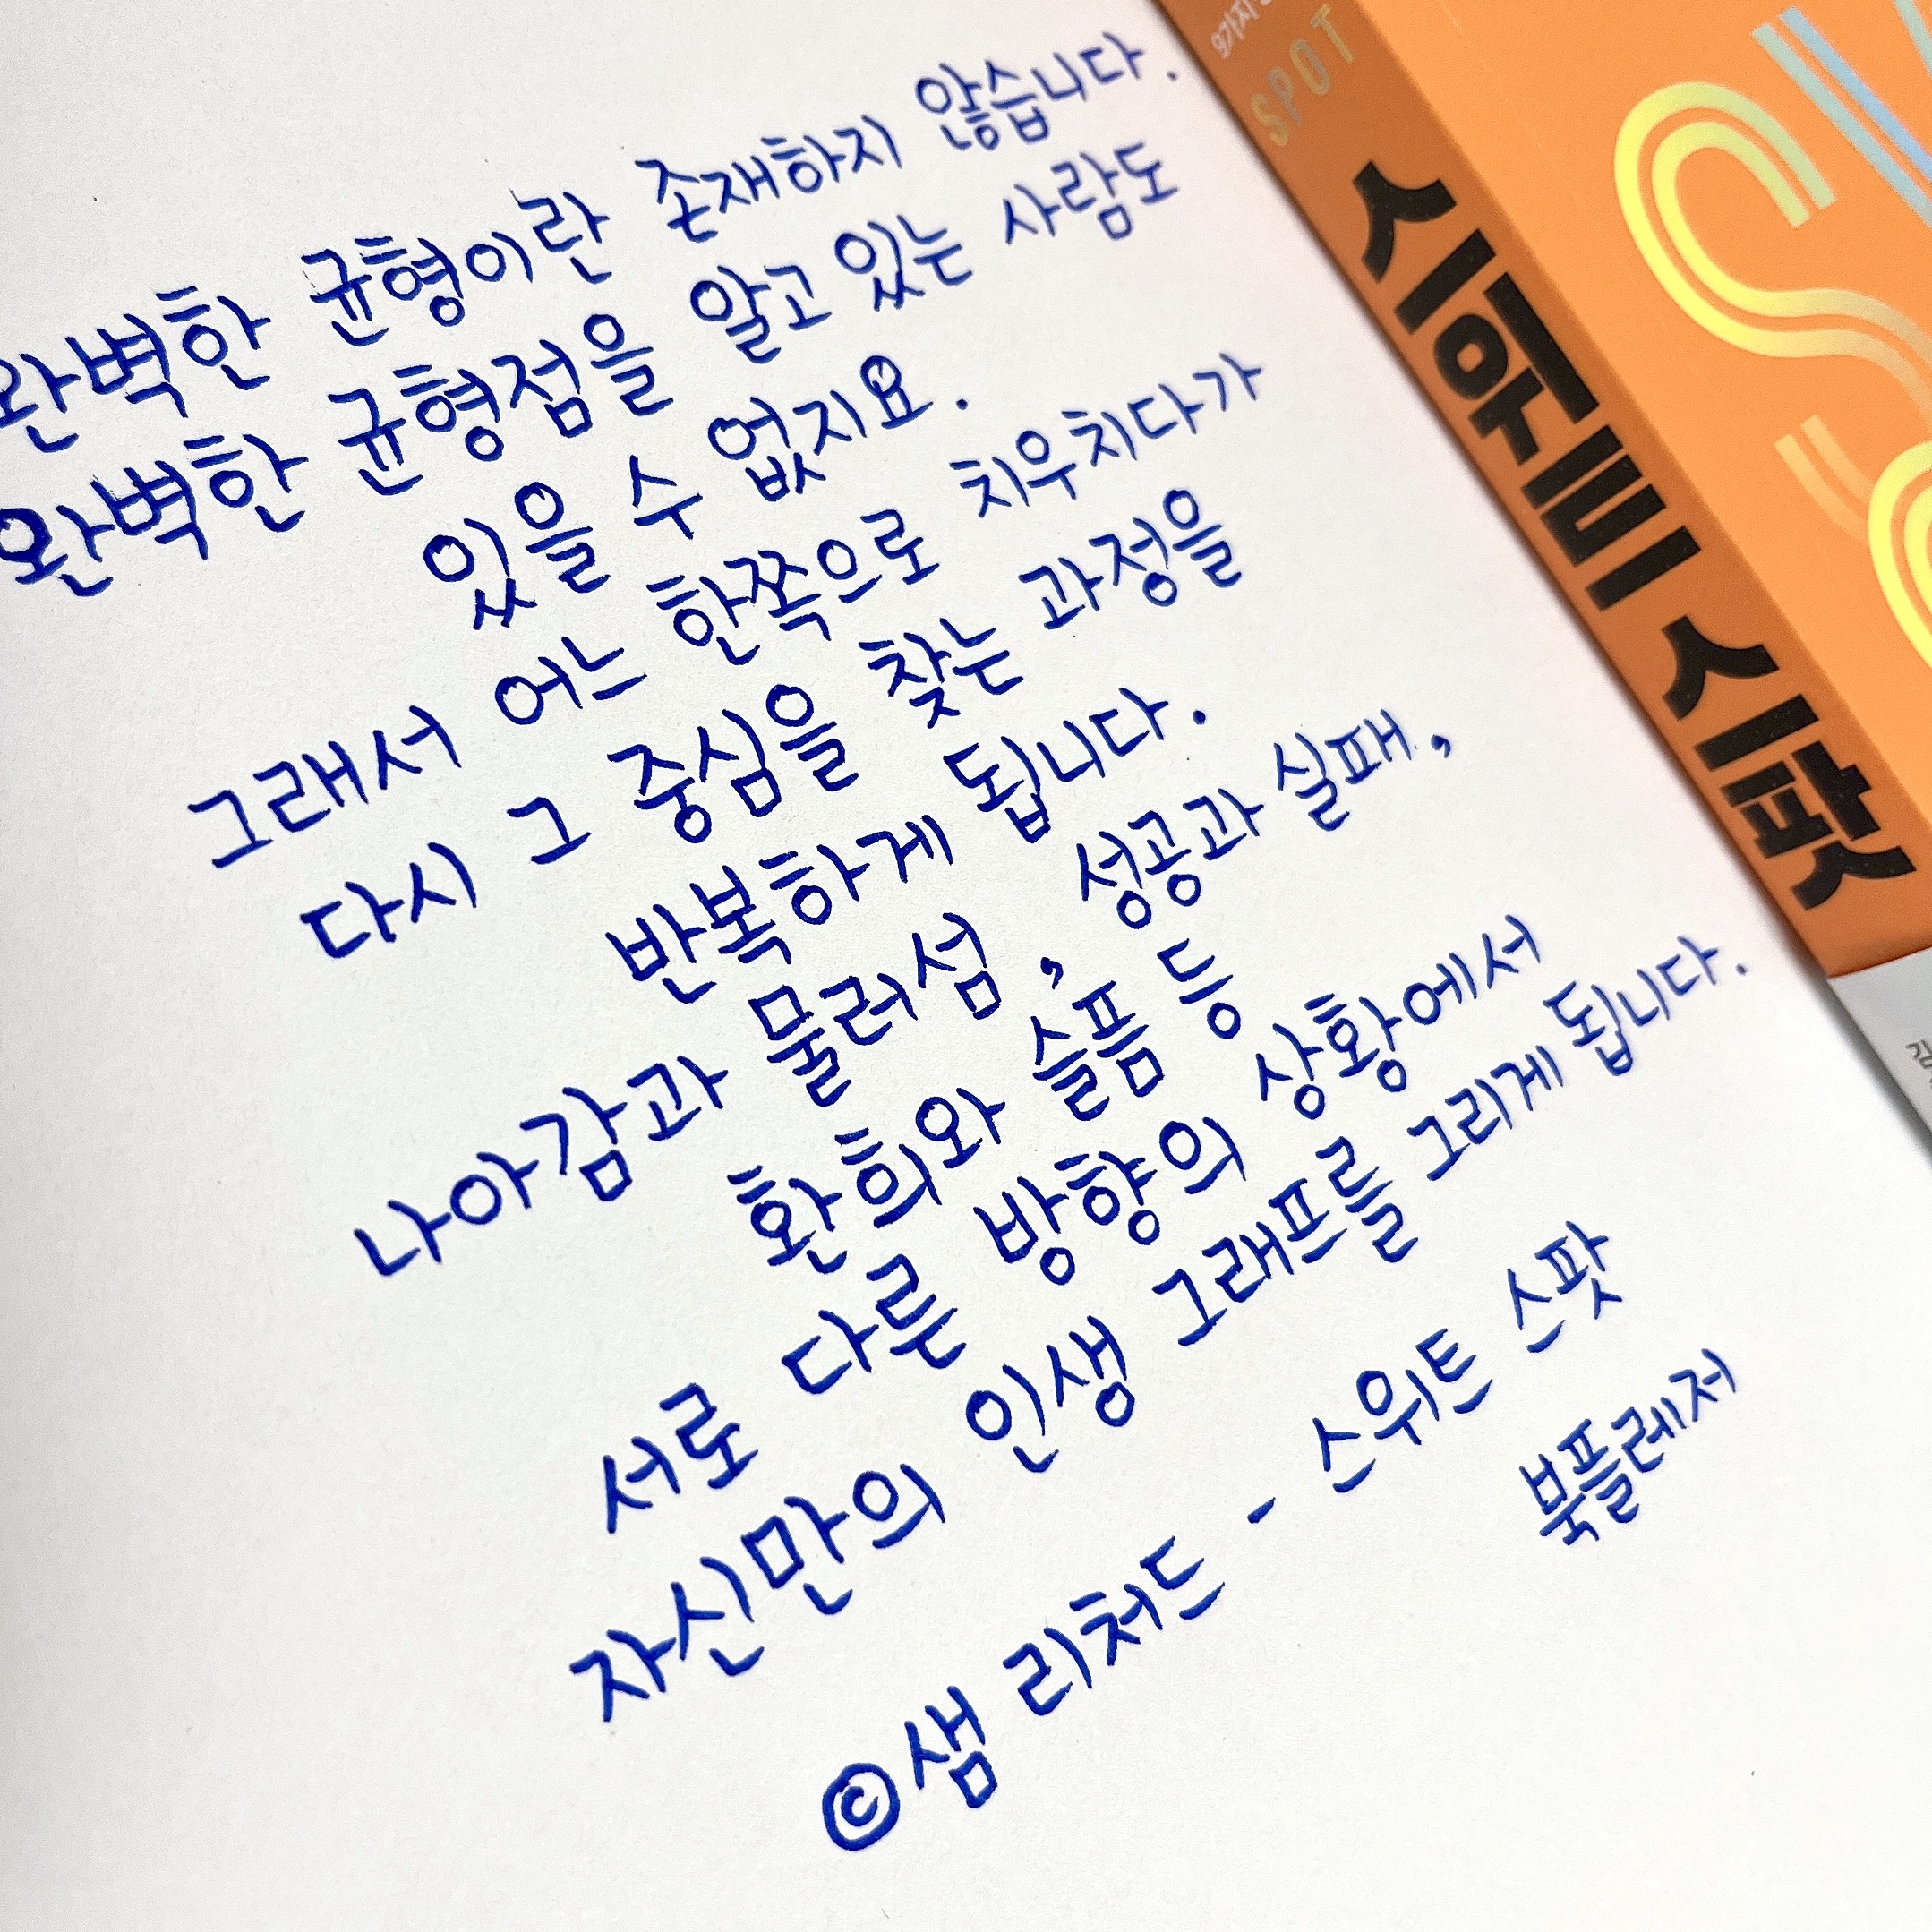 완벽한 균형이란 존재하지 않습니다.
완벽한 균형점을 알고 있는 사람도
있을 수 없지요.
그래서 어느 한쪽으로 치우치다가
다시 그 중심을 찾는 과정을
반복하게 됩니다.
나아감과 물러섬, 성공과 실패,
환희와 슬픔 등
서로 다른 방향의 상황에서
자신만의 인생 그래프를 그리게 됩니다.
©샘 리처드 - 스위트 스팟
북플레저
9가지
SPOT
스위트 스팟